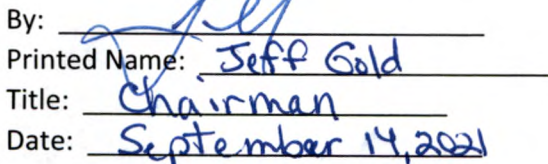 By:
Printed Name: Jeff Gold
Title: Chairman
Date: September 14, 2021